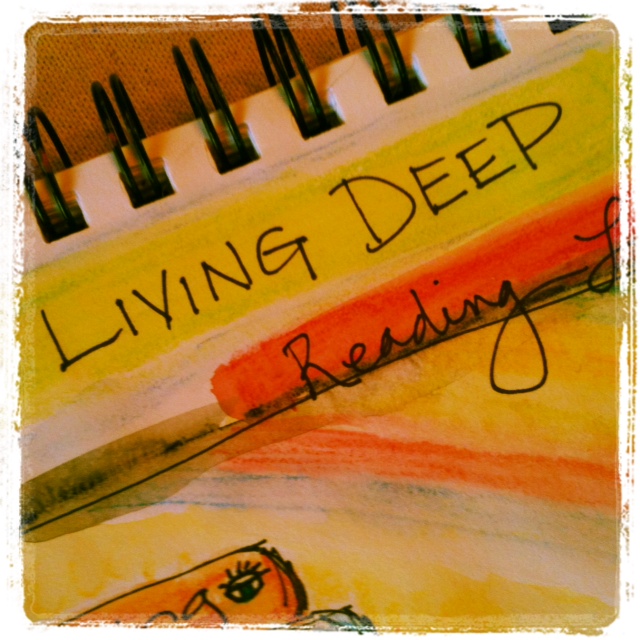 LIVING DEEP
Reading